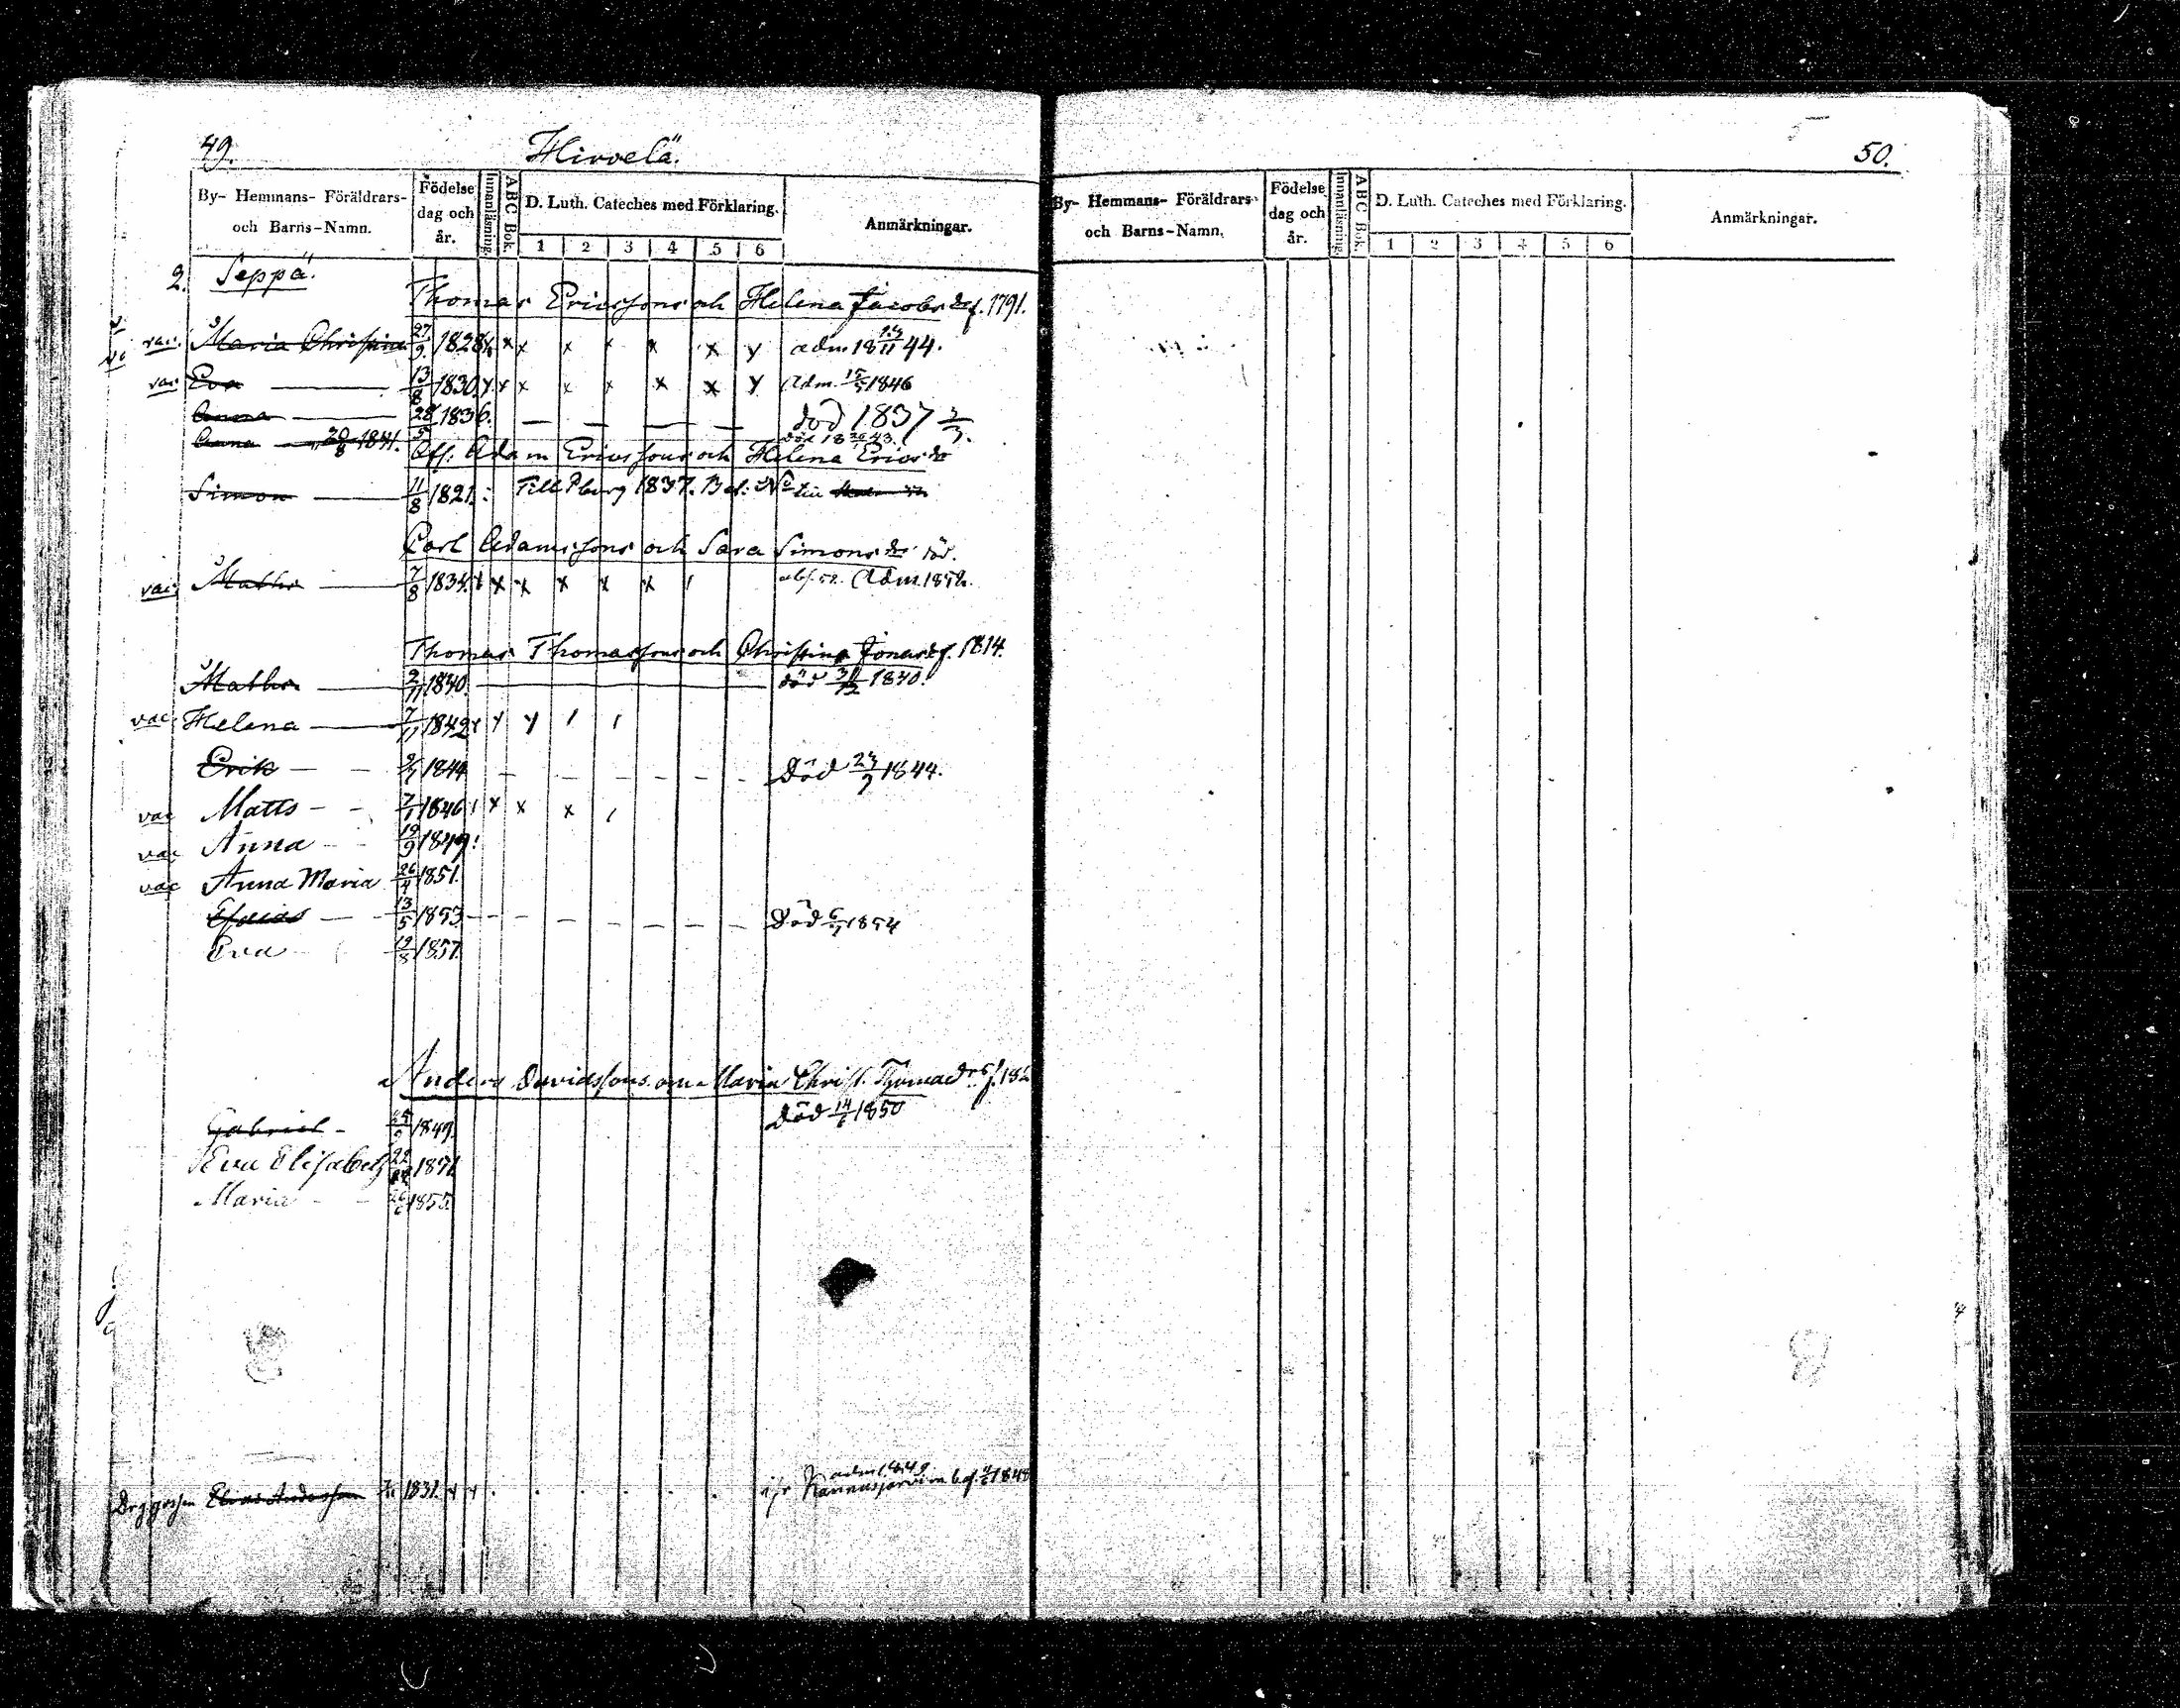 49.
Hirvelä.
50.
By- Hemmans- Föräldrars- och Barns-Namn.
Födelse dag och år.
Innanläsning.
ABC Bok.
D. Luth. Cateches med Förklaring.
1 2 3 4 5 6
Anmärkningar.
By- Hemmans- Föräldrars- och Barns-Namn.
Födelse dag och år.
Innanläsning.
ABC Bok.
D. Luth. Cateches med Förklaring.
1 2 3 4 5 6
Anmärkningar.
2. Seppä.
Thomas Ericssons och Helena Jacobsd. f. 1791.
vac. Maria Christina 27/9 1828 x x x x x x x y adm 18 /11 44.
vac Eva 13/8 1830 y x x x x x x y Adm. 15/5 1846
Anna 28/5 1836. död 1837 3/3.
Anna 20/8 1841. död 18 43.
Aff: Adam Ericssons och Helena Ericsdr
Simon 11/8 1821. Till Pburg 1837. Bet: No
Carl Adamssons och Sara Simonsdr död.
vac Matts 7/8 1834. x x x x x x Adm. 1852.
Thomas Thomassons och Christina Jonasd f. 1814.
Matts 2/11 1840. död 31/12 1840.
vac Helena 7/11 1842 y y y
Erik 1844 Död 23/7 1844.
vac Matts 7/1 1846 x x x
vac Anna 19/9 1849
vac Anna Maria 26/4 1851.
Esaias 13/5 1853 Död 6/7 1854
Eva 19/8 1857
Anders Davidssons och Maria Christ. Thomaedr f. 182
Gabriel 1849. Död 14/6 1850
Eva Elisabeth 22 1851
Maria 26/6 1855.
Drggossen Elias Andersson 1831. x x adm 1849
ifr Kannusjärvi m. bet. 1848